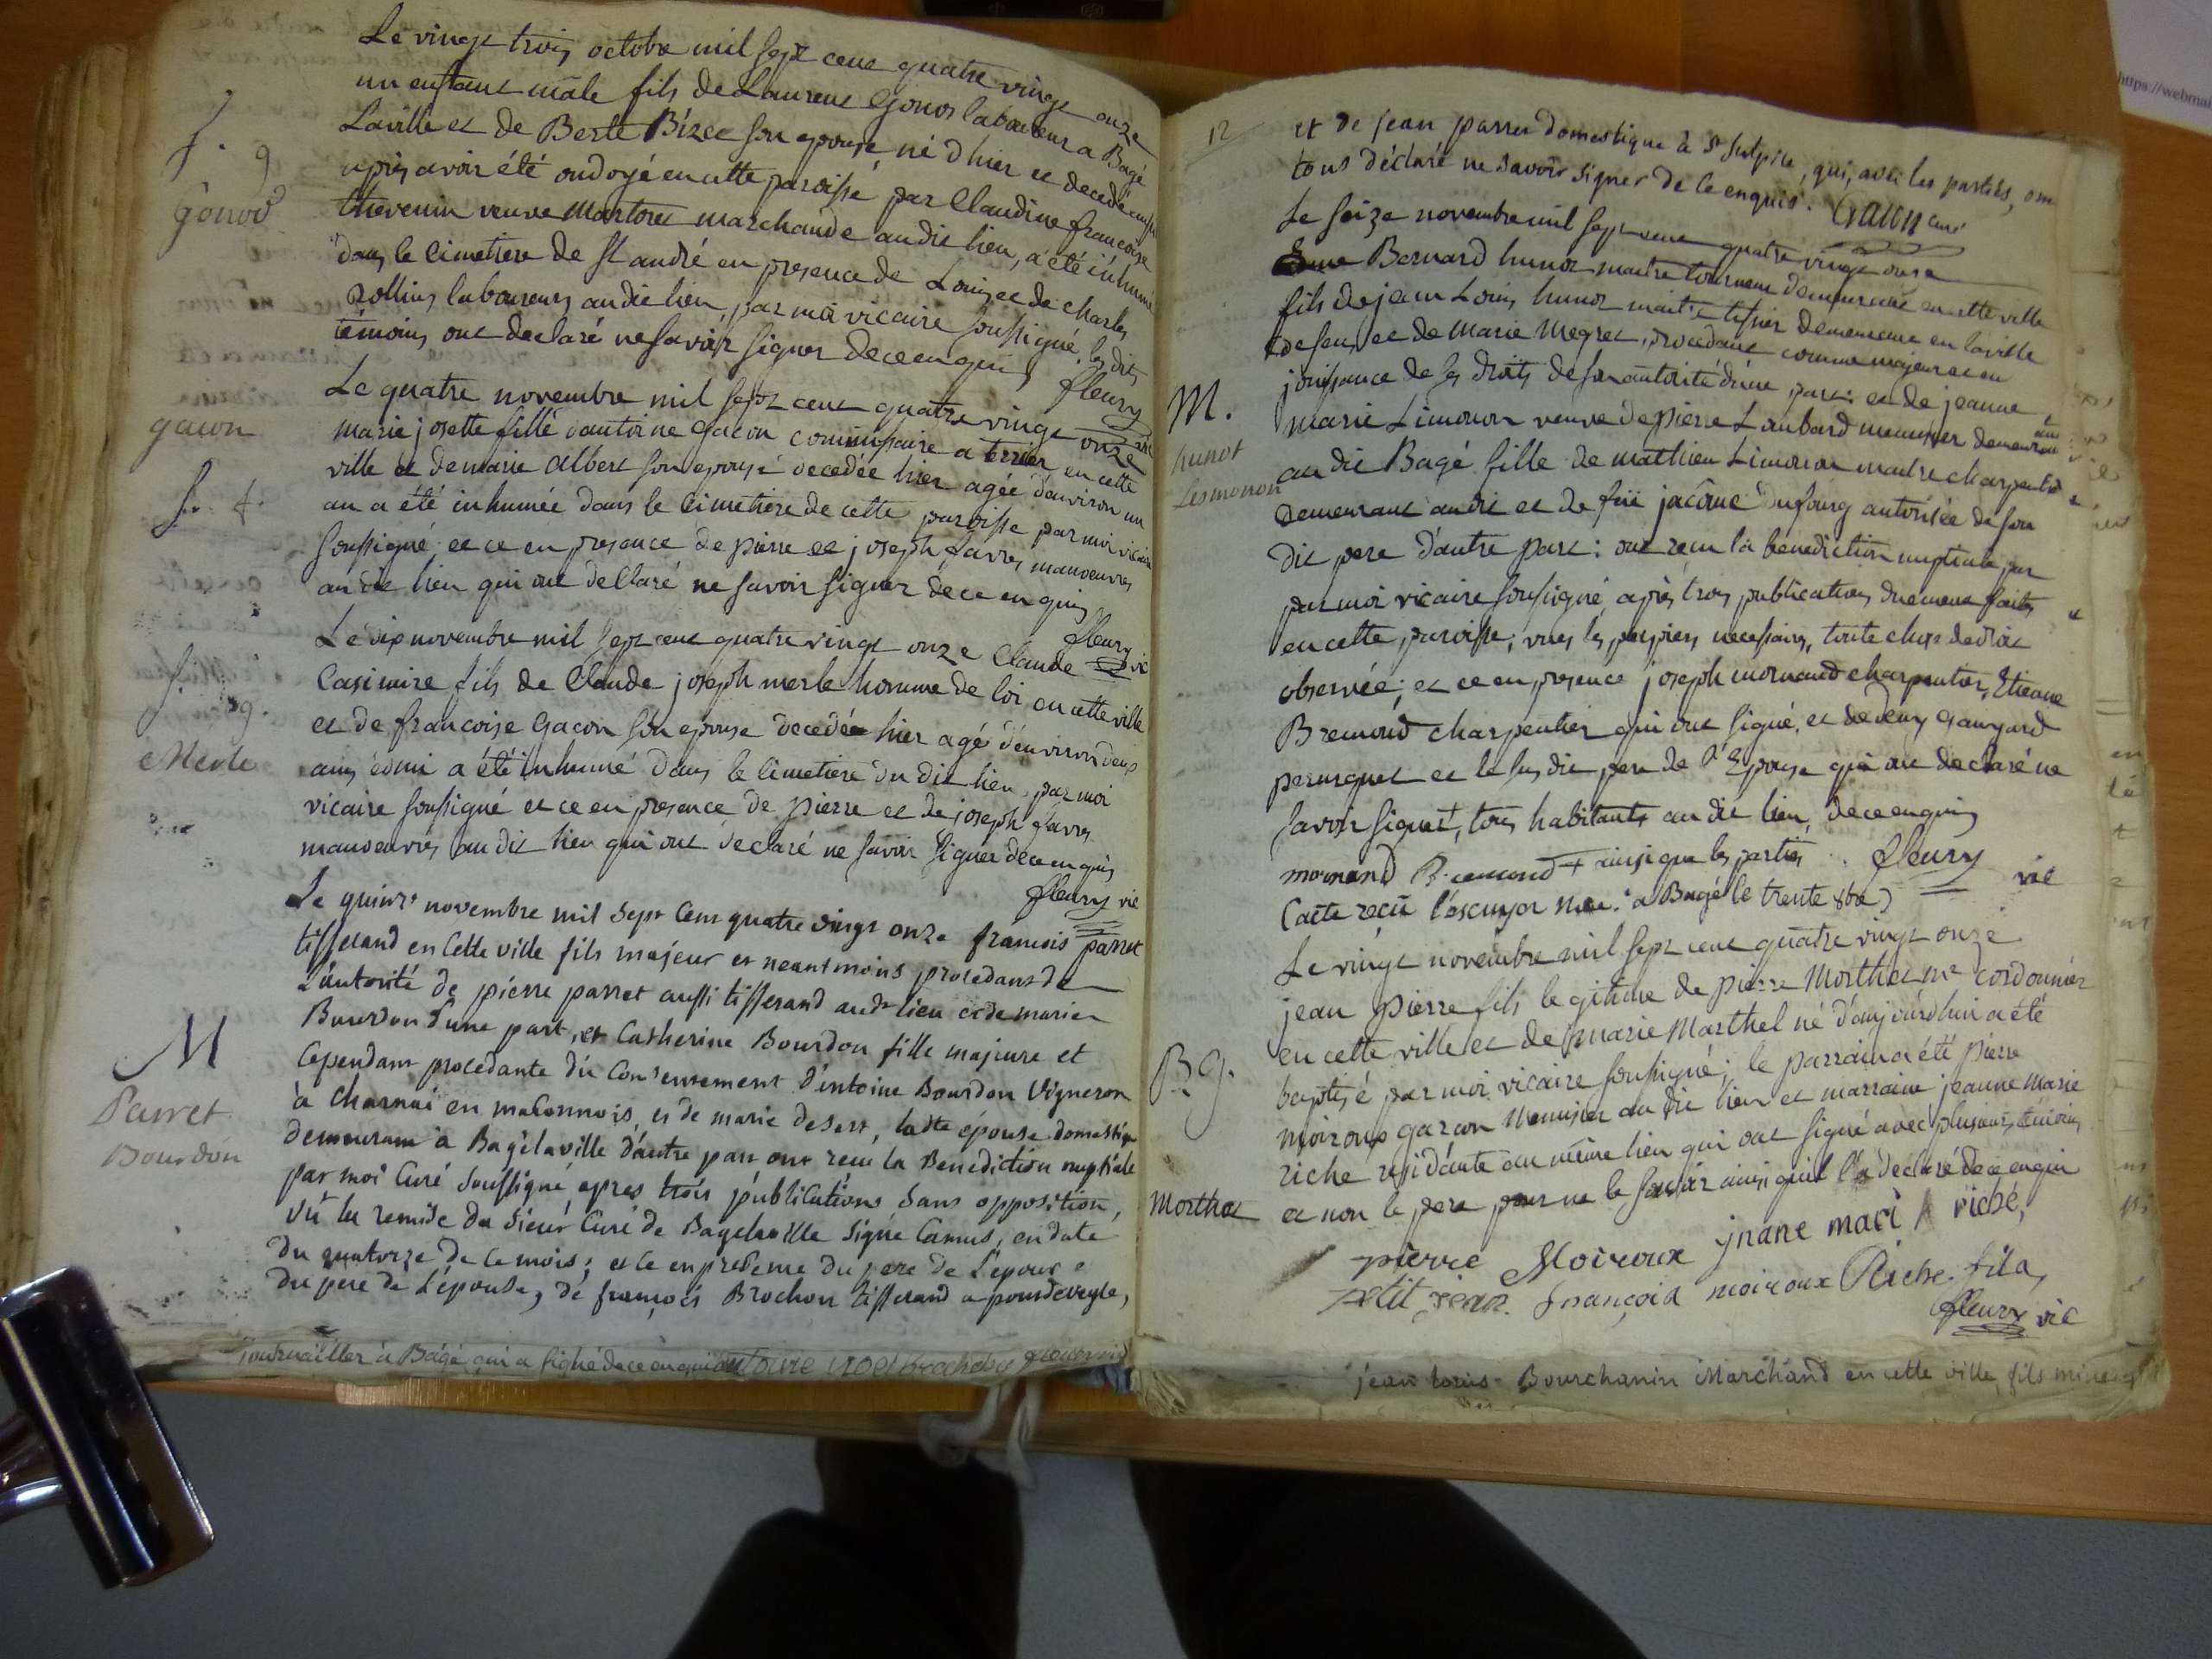 Le vingt trois octobre mil sept cent quatre vingt onze
un enfant mâle fils de Laurent Gonod laboureur a Bagé
Laville et de Berte Bizet son epouse, né d hier et decedé aussi
après avoir été ondoyé en cette paroisse par Claudine francoise
thevenin veuve Martoret marchande au dit lieu, a été inhumé
dans le cimetiere de St andré en presence de Louis et de charles
Rollins laboureurs au dit lieu, par moi vicaire soussigné, les dits
témoins ont declaré ne savoir signer de ce enquis
fleury vic
f. g
gonod
Le quatre novembre mil sept cent quatre vingt onze
marie josette fille d'antoine gacon commissaire a terrier en cette
ville et de marie albert son epouse decedée hier agée d'environ un
an a été inhumée dans le cimetiere de cette paroisse par moi vicaire
soussigné, et ce en presence de pierre et joseph favres manoeuvres
au dit lieu qui ont declaré ne savoir signer de ce enquis
fleury vic
gacon
f. f.
Le dix novembre mil sept cent quatre vingt onze Claude
Casimire fils de Claude joseph merle homme de loi en cette ville
et de francoise Gacon son epouse decedée hier agé d'environ deux
ans et demi a été inhumé dans le cimetiere du dit lieu, par moi
vicaire soussigné et ce en presence de pierre et de joseph favres
manoeuvres au dit lieu qui ont declaré ne savoir signer de ce enquis
fleury vic
f. g.
Merle
Le quinze novembre mil sept cent quatre vingt onze francois parret
tisserand en cette ville fils majeur et neantmoins procedant de
L'autorité de pierre parret aussi tisserand audt lieu et de marie
Bourdon d'une part, et Catherine Bourdon fille majeure et
Cependant procedante du consentement d'entoine Bourdon Vigneron
à Charnai en maconnois, et de marie desert, ladte épouse domestique
demeurant à Bagélaville d'autre part ont recu la Benediction nuptiale
par moi Curé soussigné, apres trois publications sans opposition,
vû la remise du Sieur Curé de Bagélaville signé Camus, en date
du quatorze de ce mois; et ce en presence du pere de L'epoux
du pere de L'épouse, de francois Brochon tisserand a pondeveyle,
M
Parret
Bourdon
journallier à Bagé qui a signé de ce enquis
12
et de jean parret domestique à St Sulpice, qui, avec les parties, ont
tous déclaré ne savoir signer de ce enquis. Gacon curé
Le seize novembre mil sept cent quatre vingt onze
Bernard hunot maitre tourneur demeurant en cette ville
fils de jean Louis hunot maitre tissier demeurant en laville
et de Marie Megret, procedant comme majeur et en
jouissance de ses droits de son autorité d'une part: et de jeanne
marie Limonon veuve de pierre Loubard menusier demeurant
au dit Bagé fille de mathieu Limonon maitre charpentier
demeurant au dit et de füe jacâme Dufourg autorisée de son
dit pere d'autre part: ont recu la benediction nuptiale par
par moi vicaire soussigné, après trois publications duement faites
en cette paroisse, vues les papiers necessaires, toute chose de droit
observée; et ce en presence joseph mornand charpentier, Etienne
Bremond charpentier qui ont signé, et de deny Gauyard
peruquet et le susdit pere de l'Epouse qui ont declaré ne
savoir signer+, tous habitants au dit lieu, de ce enquis
mornand Bremond + ainsi que les parties . fleury vic
(acte recu l'escuyer nre. a Bagé le trente 8bre)
M.
hunot
Lesmonon
Le vingt novembre mil sept cent quatre vingt onze
jean pierre fils legitime de pierre Morthet me cordonnier
en cette ville et de marie Marthel né d'aujourdhui a été
baptisé par moi vicaire soussigné; le parrain a été pierre
moiroux garcon menusier au dit lieu et marraine jeanne marie
riche residante au même lieu qui ont signé avec plusieurs temoins
et non le pere pour ne le savoir ainsi quil l'a declaré de ce enquis
pierre Moiroux jnane mari riché,
petit jean. françoid moiroux Riche fils,
fleury vic
B g.
Morthet
jean Louis Bourchanin Marchand en cette ville, fils mineur